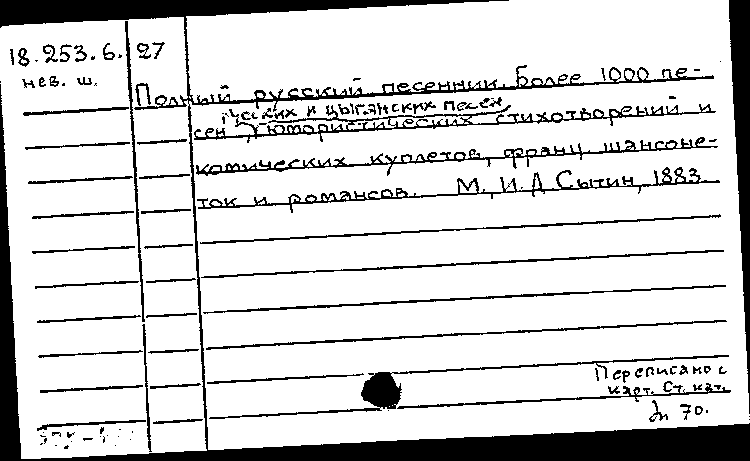 18.253.6. 27
нев. ш.
Полный русский песенник. Более 1000 пе-
русских и цыганских песен
сен юмористических стихотворений и
комических куплетов, франц. шансоне-
ток и романсов. М., И. Д Сытин, 1883.
Переписано с
карт. Ст. кат.
70.